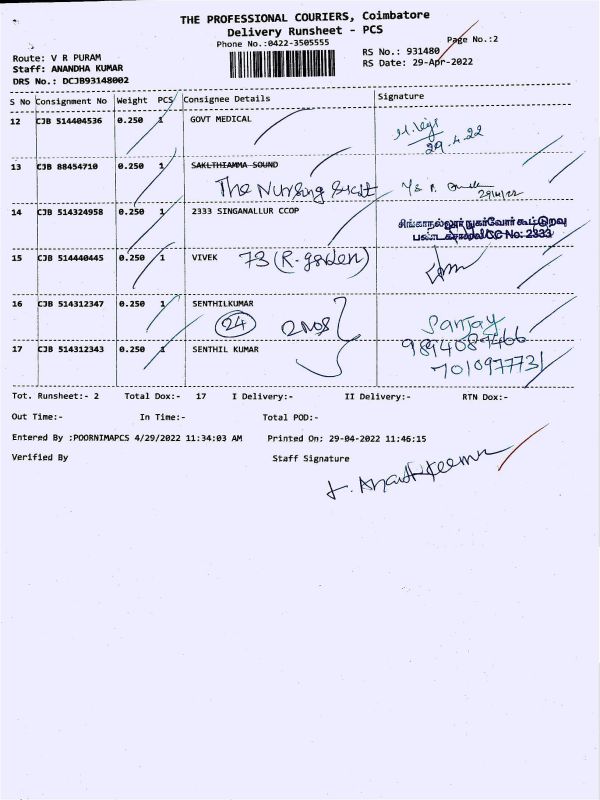 THE PROFESSIONAL COURIERS, Coimbatore
Delivery Runsheet - PCS
Phone No.:0422-3505555
Page No.:2
Route: V R PURAM
RS No.: 931480
Staff: ANANDHA KUMAR
RS Date: 29-Apr-2022
DRS No.: DCJB93148002
S No Consignment No Weight PCS Consignee Details Signature
12 CJB 514404536 0.250 1 GOVT MEDICAL
29.4.22
13 CJB 88454710 0.250 1 SAKLTHIAMMA SOUND
The Nursing
29/4/22
14 CJB 514324958 0.250 1 2333 SINGANALLUR CCOP
சிங்காநல்லூர் நுகர்வோர் கூட்டுறவு
பண்டகசாலை CC No: 2333
15 CJB 514440445 0.250 1 VIVEK 73 (R-garden)
16 CJB 514312347 0.250 1 SENTHILKUMAR
24 2 Nos
Sanjay
9894089466
17 CJB 514312343 0.250 1 SENTHIL KUMAR
7010977731
Tot. Runsheet:- 2 Total Dox:- 17 I Delivery:- II Delivery:- RTN Dox:-
Out Time:- In Time:- Total POD:-
Entered By :POORNIMAPCS 4/29/2022 11:34:03 AM Printed On: 29-04-2022 11:46:15
Verified By Staff Signature